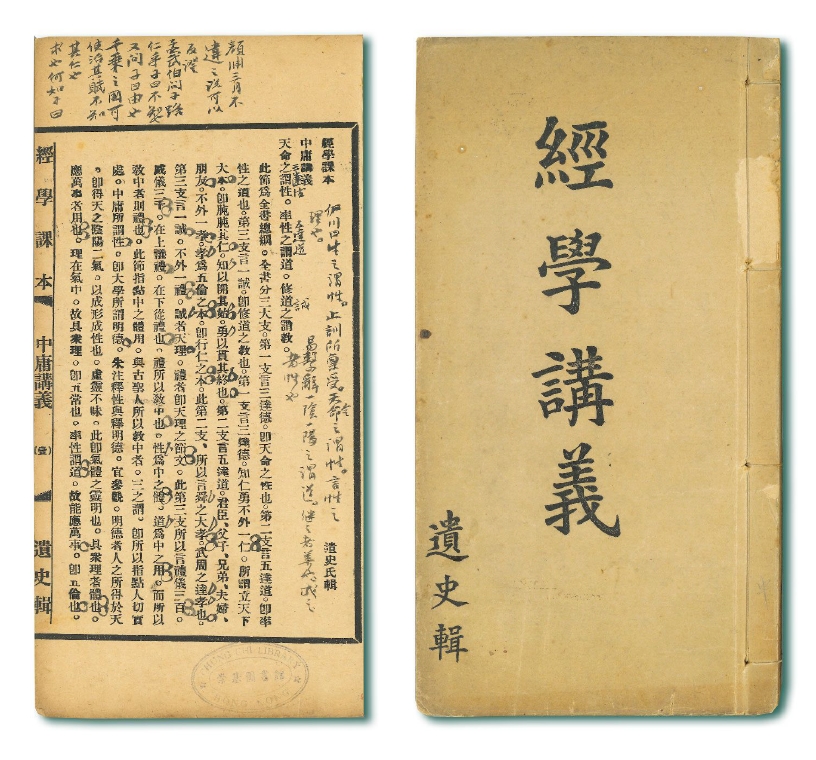 顏淵三月不
違之說可以
反證
孟武伯問子路
仁乎子曰不知也
又問子曰由也
千乘之國可
使治其賦不知
其仁也
求也何如子曰
經學課本
伊川曰生之謂性。止訓所稟受。天命之謂性。言性之
理也。
中庸講義
遺史氏輯
五達道
誠
易繫辭一陰一陽之謂道。繼之者善成之
者性也
天命之謂性。率性之謂道。修道之謂教。
此節爲全書總綱。全書分三大支。第一支言三達德。卽天命之性也。第二支言五達道。卽率
性之道也。第三支言一誠。卽修道之教也。第一支言三達德。知仁勇不外一仁。所謂立天下
大本。卽肫肫其仁。知以開其始。勇以貫其終也。第二支言五達道。君臣、父子、兄弟、夫婦、
朋友。不外一孝。孝爲五倫之本。卽行仁之本。此第二支、所以言舜之大孝。武周之達孝也。
第三支言一誠。不外一禮。誠者天理。禮者卽天理之節文。此第三支所以言禮儀三百。
威儀三千。在上議禮。在下從禮也。禮所以教中也。性爲中之體。道爲中之用。而所以
教中者則禮也。此節指點中之體用。與古聖人所以教中者。三之謂。卽所以指點人切實
處。中庸所謂性。卽大學所謂明德。朱注釋性與釋明德。宜參觀。明德者人之所得於天
。卽得天之陰陽二氣。以成形成性也。虛靈不昧。此卽氣體之靈明也。具衆理者體也。
應萬事者用也。理在氣中。故具衆理。卽五常也。率性謂道。故能應萬事。卽五倫也。
經學課本 中庸講義 (壹) 遺史輯
HUNG CHI LIBRARY
經學講義
遺史輯